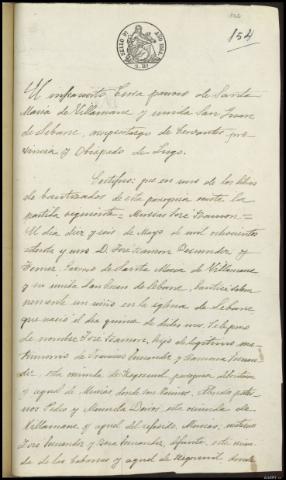 154
El infrascrito Ecónomo de Santa
María de Villamane y unida San Juan
de Sebane, arciprestazgo de Cervantes pro-
vincia y Obispado de Lugo.
Certifico: que en uno de los libros
de bautizados de esta parroquia consta la
partida siguiente = Murias José Ramón =
El día diez y seis de Mayo de mil ochocientos
y uno, D. José Ramón Fernández y
de Santa María de Villamane
y su unida San Juan de Sebane, bauticé solem
nemente un niño en la iglesia de Sebane,
que nació el día quince de dicho mes. Le puse
de nombre José Ramón, hijo de legítimo ma-
trimonio de Francisco Fernández y Ramona
de parroquia
y aquel de Murias donde son vecinos. Abuelos pater-
nos Pedro y Manuela esta oriunda de
Villamane y aquel del referido Murias; maternos
José Fernández y Rosa Fernández, difunta, esta oriun-
da de y aquel de donde